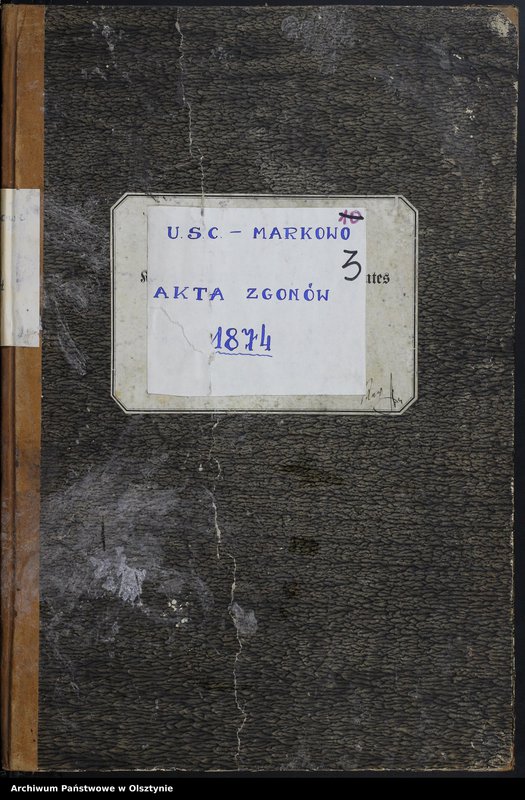 10
U.S.C. – MARKOWO
3
ntes
AKTA ZGONÓW
1874
Archiwum Państwowe w Olsztynie